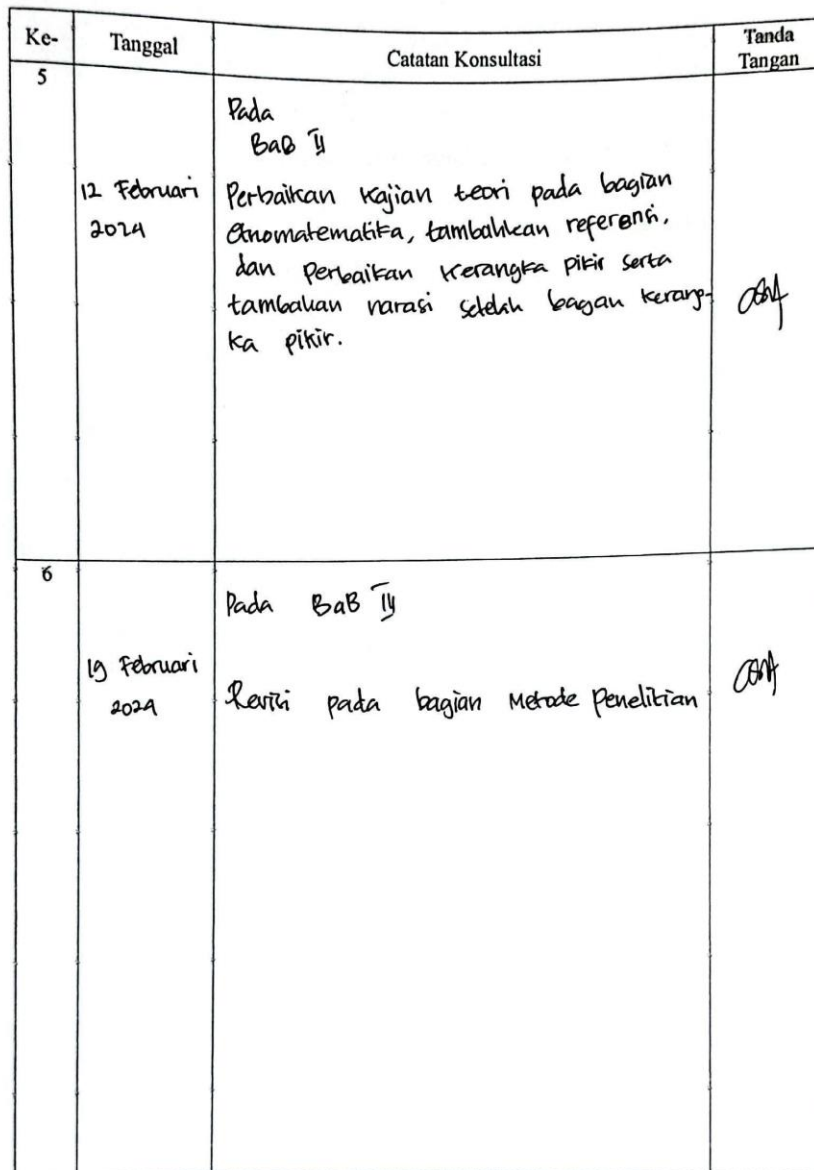 Ke-
Tanggal
Catatan Konsultasi
Tanda
Tangan
5
12 Februari
2024
Pada
BaB II
Perbaikan kajian teori pada bagian
etnomatematika, tambahkan referensi,
dan Perbaikan kerangka pikir serta
tambahan narasi setelah bagan kerang-
ka pikir.
6
19 Februari
2024
Pada BaB
Revisi pada bagian Metode Penelitian